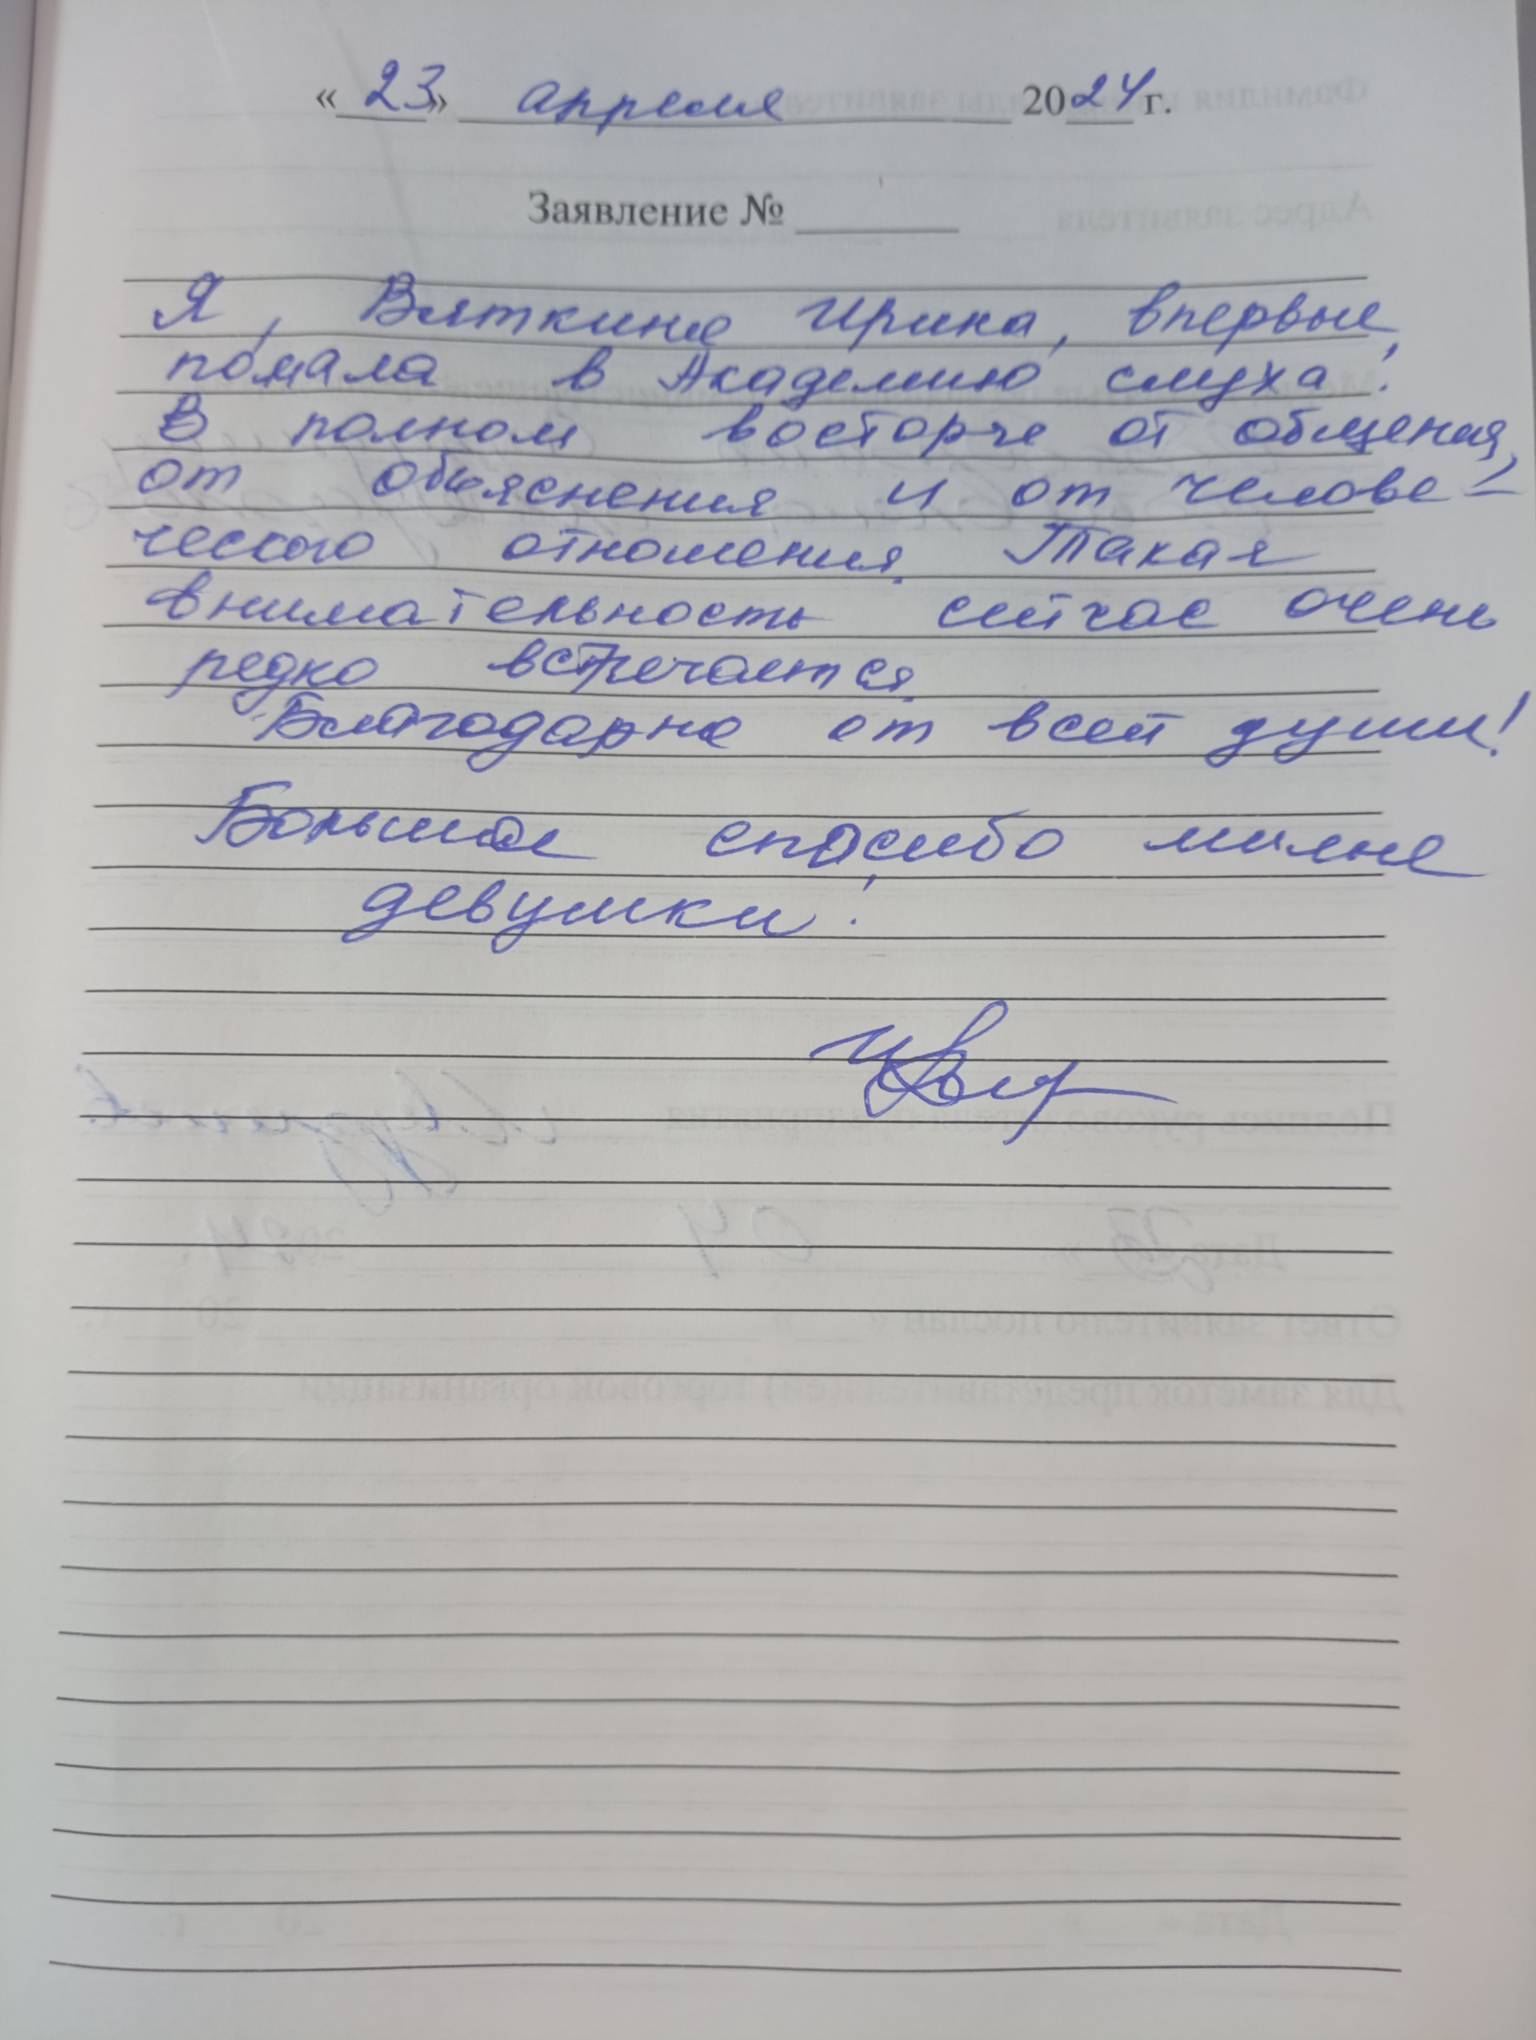 «23» апреля 2024 г.
Заявление №
Я, Вяткина Ирина, впервые
попала в Академию слуха!
В полном восторге от общения,
от объяснения и от челове-
ческого отношения. Такая
внимательность сейчас очень
редко встречается.
Благодарна от всей души!
Большое спасибо милые
девушки!